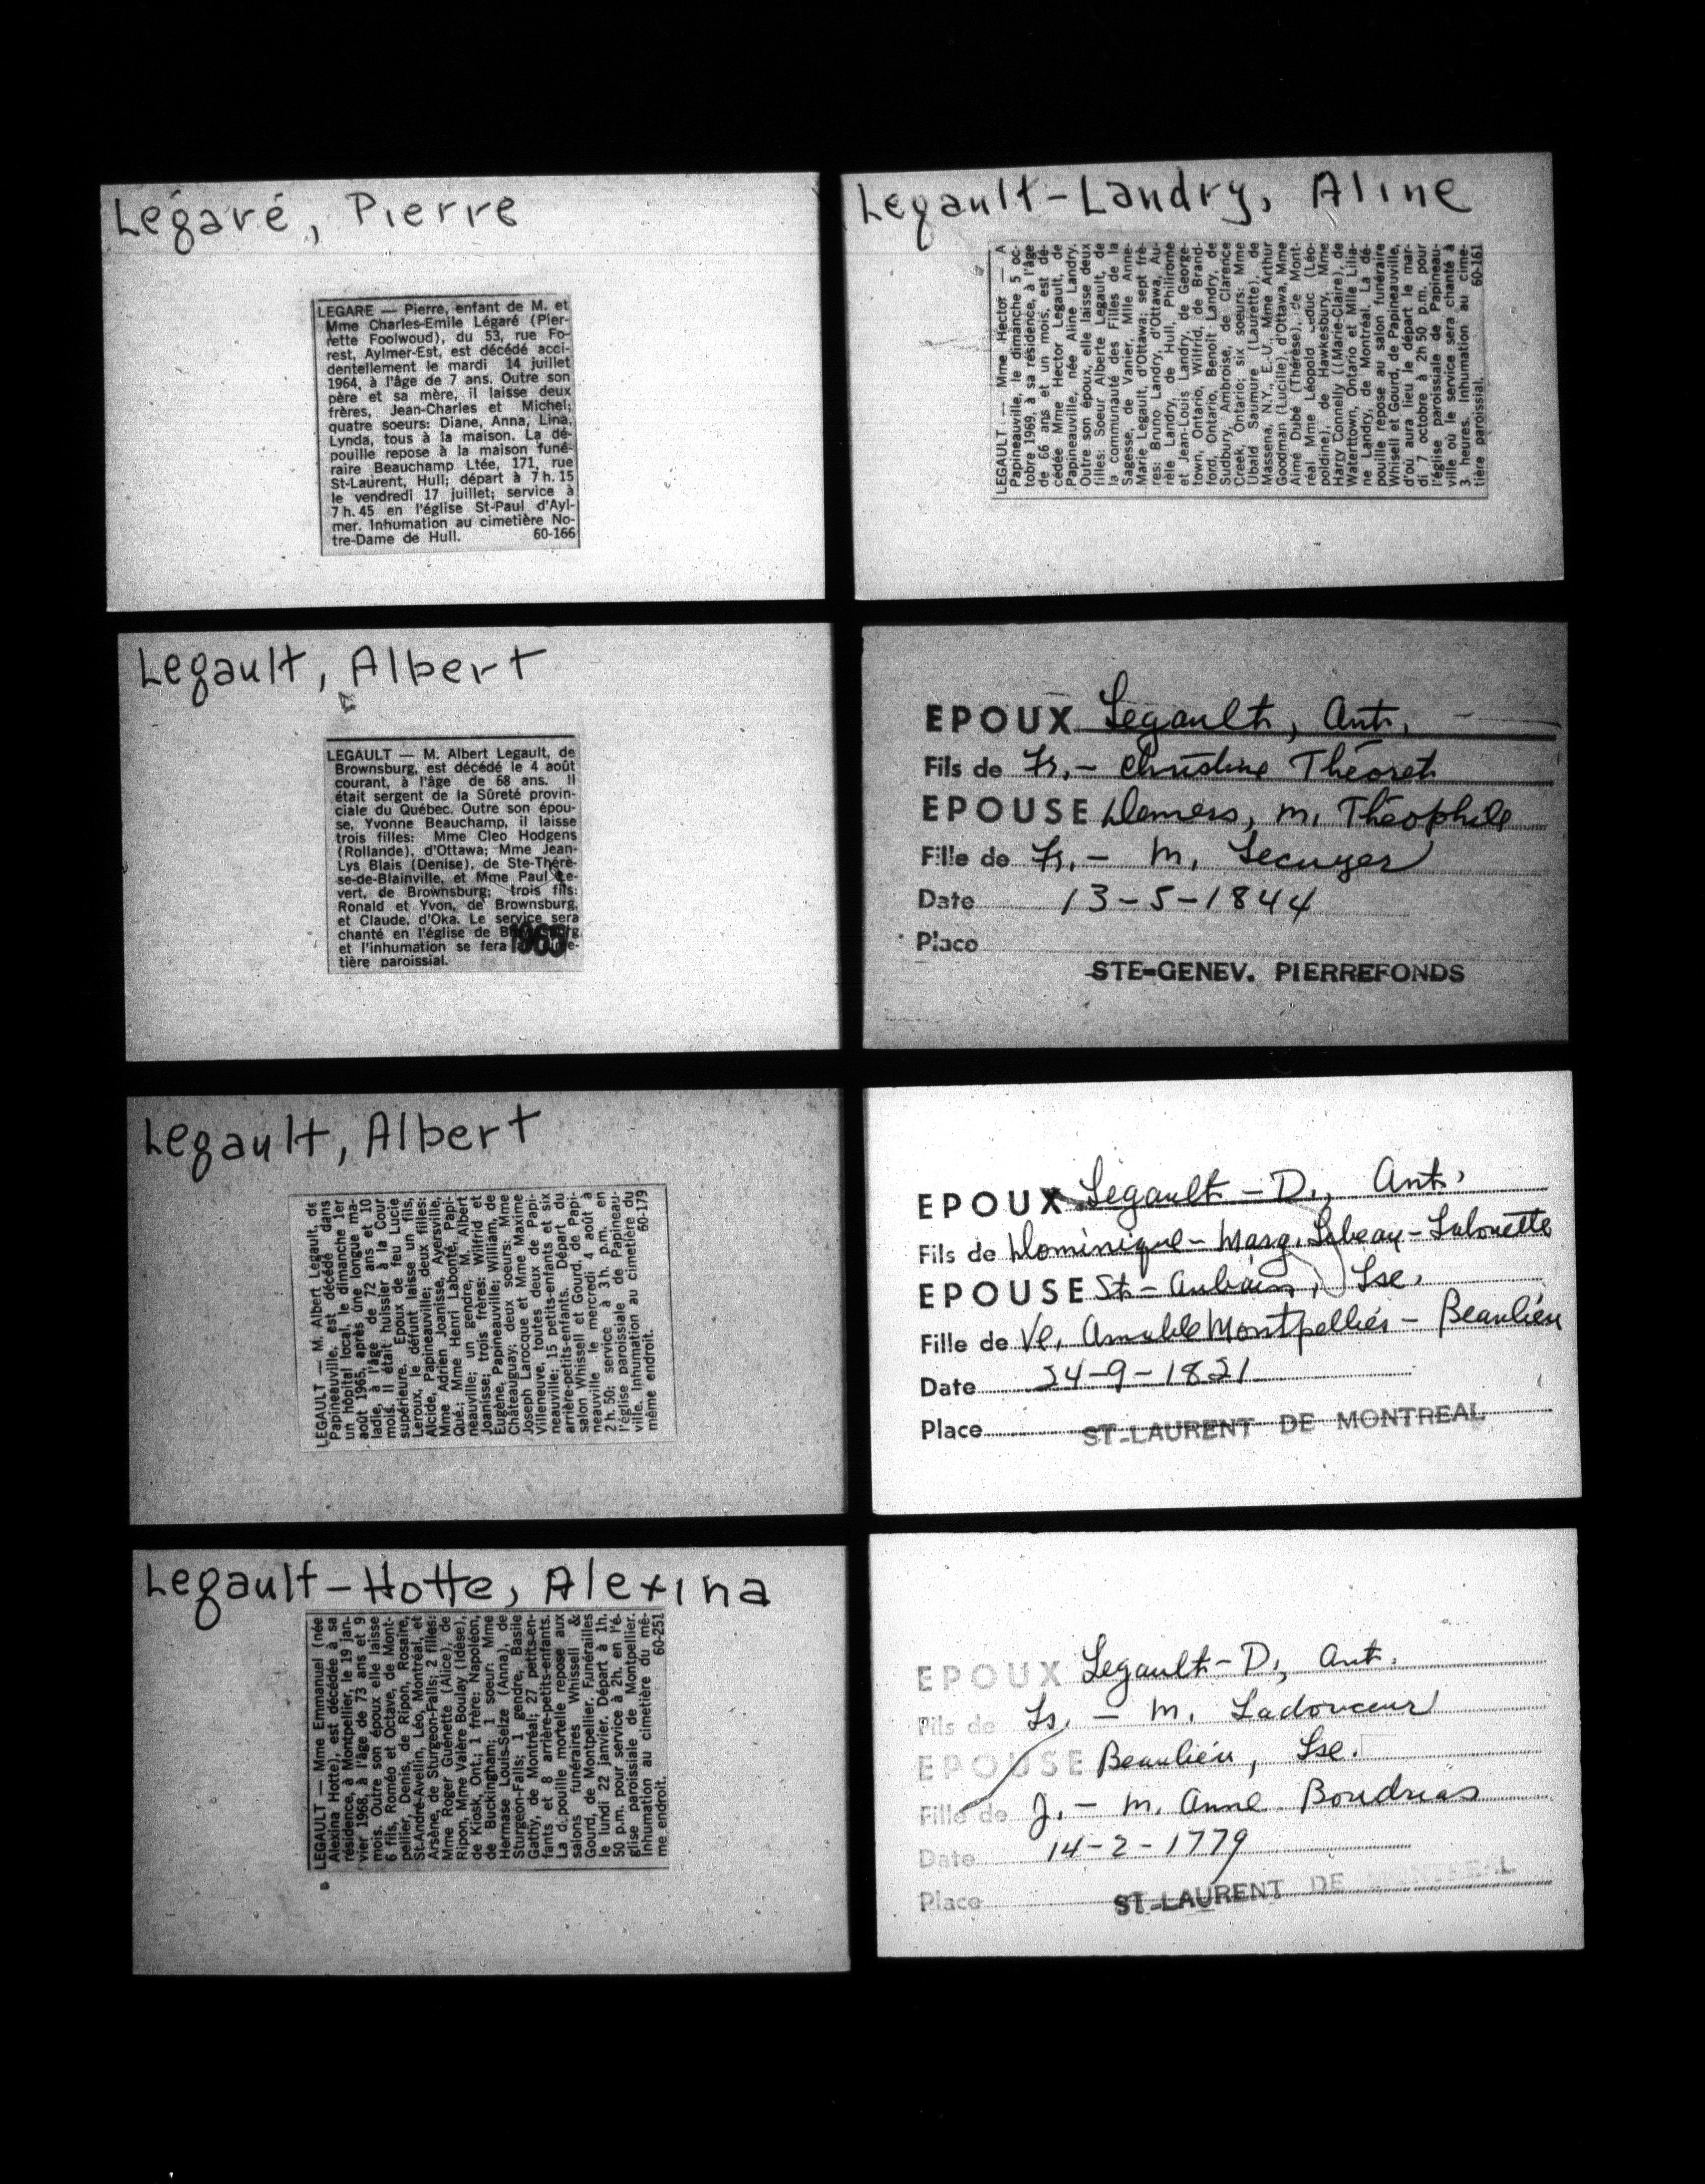 Légaré, Pierre
LEGARE — Pierre, enfant de M. et
Mme Charles-Emile Légaré (Pier-
rette Foolwoud), du 53, rue Fo-
rest, Aylmer-Est, est décédé acci-
dentellement le mardi 14 juillet
1964, à l'âge de 7 ans. Outre son
père et sa mère, il laisse deux
frères, Jean-Charles et Michel;
quatre soeurs: Diane, Anna, Lina,
Lynda, tous à la maison. La dé-
pouille repose à la maison funé-
raire Beauchamp Ltée, 171, rue
St-Laurent, Hull; départ à 7 h. 15
le vendredi 17 juillet; service à
7 h. 45 en l'église St-Paul d'Ayl-
mer. Inhumation au cimetière No-
tre-Dame de Hull. 60-166
Legault-Landry, Aline
LEGAULT — Mme Hector — A
Papineauville, le dimanche 5 oc-
tobre 1969, à sa résidence, à l'âge
de 66 ans et un mois, est dé-
cédée Mme Hector Legault, de
Papineauville, née Aline Landry.
Outre son époux, elle laisse deux
filles: Soeur Alberte Legault, de
la communauté des Filles de la
Sagesse, de Vanier, Mlle Anne-
Marie Legault, d'Ottawa; sept frè-
res: Bruno Landry, d'Ottawa, Au-
rèle Landry, de Hull, Philirome
et Jean-Louis Landry, de George-
town, Ontario, Wilfrid, de Brand-
ford, Ontario, Benoit Landry, de
Sudbury, Ambroise, de Clarence
Creek, Ontario; six soeurs: Mme
Ubald Saumure (Laurette), de
Massena, N.Y., E.-U., Mme Arthur
Goodman (Lucille), d'Ottawa, Mme
Aimé Dubé (Thérèse), de Mont-
réal Mme Léopold Leduc (Léo-
poldine), de Hawkesbury, Mme
Harry Connelly ((Marie-Claire), de
Waterttown, Ontario et Mlle Lilia-
ne Landry, de Montréal. La dé-
pouille repose au salon funéraire
Whisell et Gourd, de Papineauville,
d'où aura lieu le départ le mar-
di 7 octobre à 2h 50 p.m. pour
l'église paroissiale de Papineau-
ville où le service sera chanté à
3 heures. Inhumation au cime-
tière paroissial. 60-161
Legault, Albert
LEGAULT — M. Albert Legault, de
Brownsburg, est décédé le 4 août
courant, à l'âge de 68 ans. Il
était sergent de la Sûreté provin-
ciale du Québec. Outre son épou-
se, Yvonne Beauchamp, il laisse
trois filles: Mme Cleo Hodgens
(Rollande), d'Ottawa; Mme Jean-
Lys Blais (Denise), de Ste-Thérè-
se-de-Blainville, et Mme Paul Le-
vert, de Brownsburg; trois fils:
Ronald et Yvon, de Brownsburg,
et Claude, d'Oka. Le service sera
chanté en l'église de
et l'inhumation se fera
tière paroissial.
EPOUX Legault, Ant.
Fils de Fr. - Christine Théoret
EPOUSE Demers, M. Théophile
Fille de Fr. - M. Lecuyer
Date 13-5-1844
Place
STE-GENEV. PIERREFONDS
Legault, Albert
LEGAULT — M. Albert Legault, de
Papineauville, est décédé dans
un hôpital local, le dimanche 1er
août 1965, après une longue ma-
ladie, à l'âge de 72 ans et 10
mois. Il était huissier à la Cour
supérieure. Epoux de feu Lucie
Leroux, le défunt laisse un fils,
Alcide, Papineauville; deux filles:
Mme Adrien Joanisse, Ayersville,
Qué.; Mme Henri Labonté, Papi-
neauville; un gendre, M. Albert
Joanisse; trois frères: Wilfrid et
Eugène, Papineauville; William, de
Châteauguay; deux soeurs: Mme
Joseph Larocque et Mme Maxime
Villeneuve, toutes deux de Papi-
neauville; 15 petits-enfants et six
arrière-petits-enfants. Départ du
salon Whissell et Gourd, de Papi-
neauville le mercredi 4 août à
2 h. 50; service à 3 h. p.m. en
l'église paroissiale de Papineau-
ville. Inhumation au cimetière du
même endroit. 60-179
EPOUX Legault - D., Ant.
Fils de Dominique - Marg. Lebeau - Lalouette
EPOUSE St-Aubain, Lse.
Fille de Ve. Amable Montpellier - Beaulieu
Date 24-9-1821
Place ST-LAURENT DE MONTREAL
Legault-Hotte, Alexina
LEGAULT — Mme Emmanuel (née
Alexina Hotte), est décédée à sa
résidence, à Montpellier, le 19 jan-
vier 1968, à l'âge de 73 ans et 9
mois. Outre son époux elle laisse
6 fils, Roméo et Octave, de Mont-
pellier, Denis, de Ripon, Rosaire,
St-André-Avellin, Léo, Montréal, et
Arsène, de Sturgeon-Falls; 2 filles:
Mme Roger Guénette (Alice), de
Ripon, Mme Valère Boulay (Idèse),
de Kiosk, Ont.; 1 frère: Napoléon,
de Buckingham; 1 soeur: Mme
Hermase Louis-Seize (Anna), de
Sturgeon-Falls; 1 gendre, Basile
Gathy, de Montréal; 27 petits-en-
fants et 8 arrière-petits-enfants.
La dépouille mortelle repose aux
salons funéraires Whissell &
Gourd, de Montpellier. Funérailles
le lundi 22 janvier. Départ à 1h.
50 p.m. pour service à 2h. en l'é-
glise paroissiale de Montpellier.
Inhumation au cimetière du mê-
me endroit. 60-251
EPOUX Legault-D., Ant.
Fils de Fr. - M. Ladouceur
EPOUSE Beaulieu, Lse.
Fille de J. - M. Anne Boudrias
Date 14-2-1779
Place ST-LAURENT DE MONTREAL